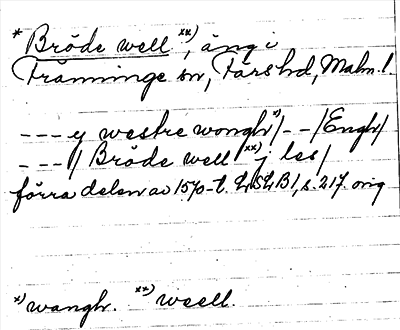 * Bröde well xx), äng i
Främninge sn, Färs hd, Malm. l.
--- y westre wongh x) | -- | Engh |
--- | / Bröde well xx) j les |
förra delen av 1570-t. LSLB 1, s. 217. orig
x) wangh. xx) weell.